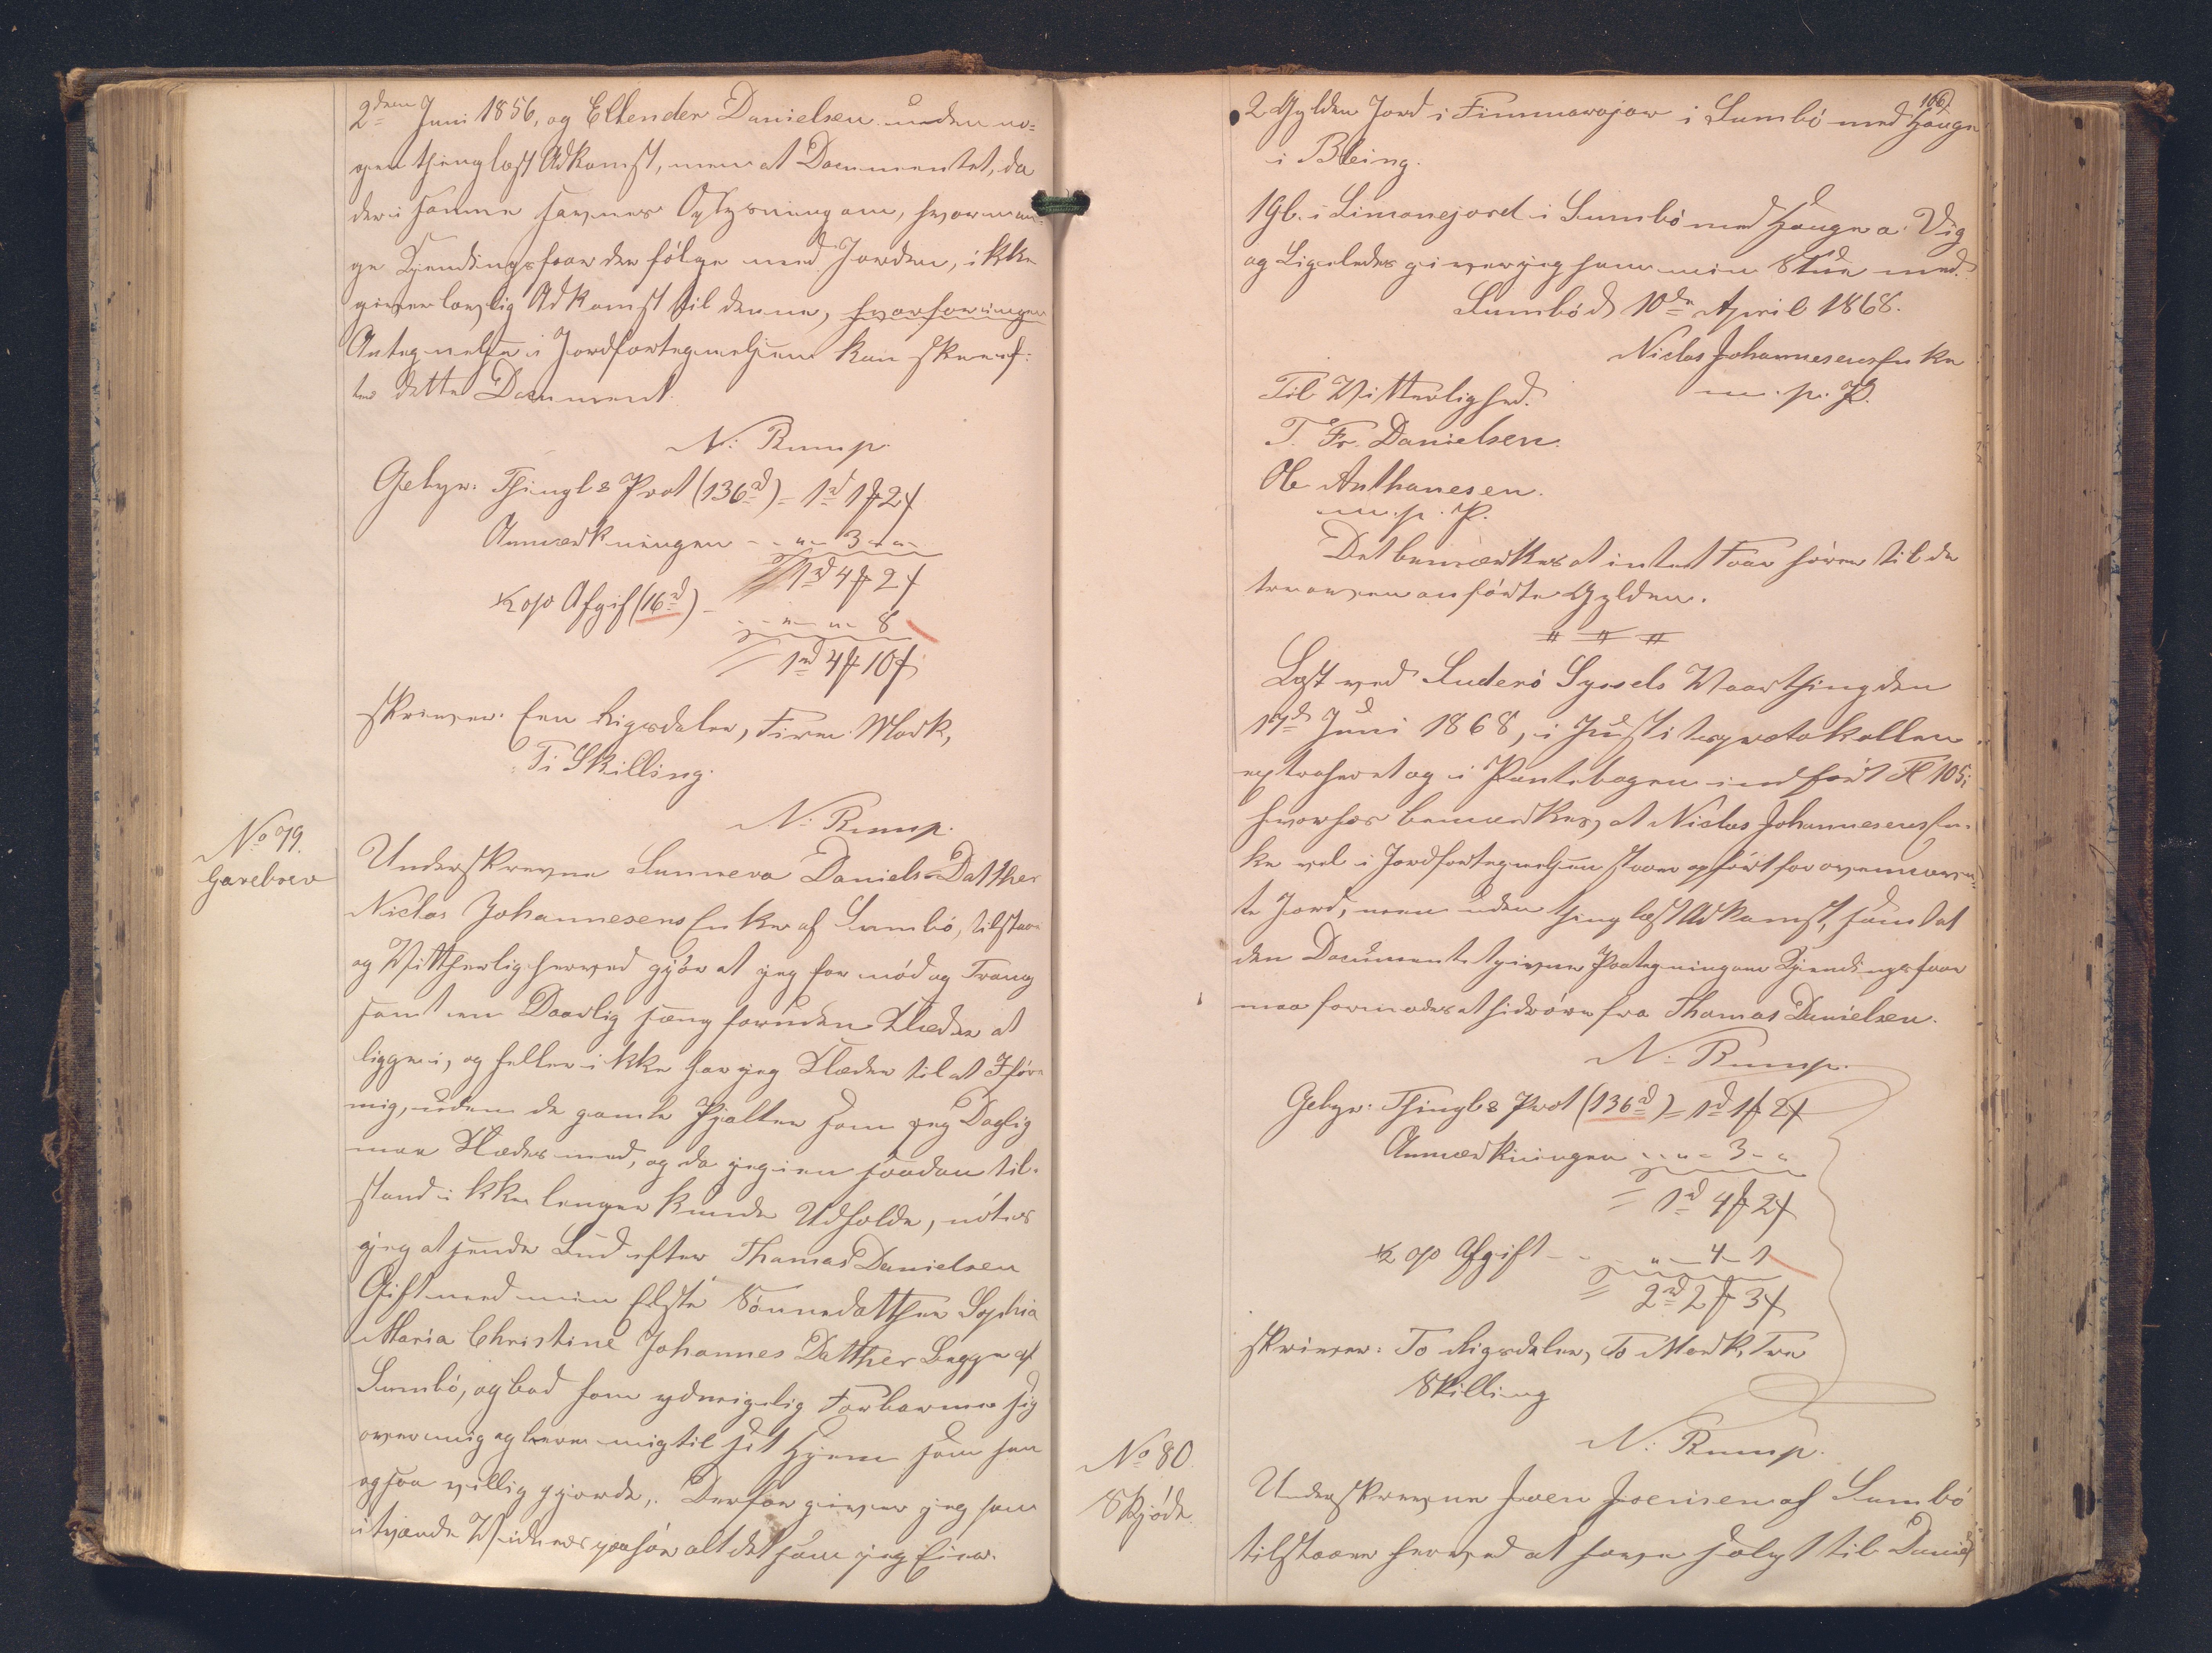 2den Juni 1856, og Ellender Danielsen uden no-
gen thinglæst Adkomst, men at Documentet, da
der i samme savnes Oplysning om, hvor man-
ge Kjendingsfaar der følge med Jorden, ikke
giver lovlig Adkomst til denne, hvorfor ingen
Antegnelse i Jordfortegnelsen kan skee ef-
ter dette Document.
N: Rump.
Gebyr: Thingl & Prot (136rd) = 1rd 1ß 2f
Anmærkningen - - " - 3 - " -
1rd 4 2
½ o/o Afgift (16rd) - - - " - " - 8
1rd 4 10
skriver: Een Rigsdaler, Fire Mark,
Ti Skilling.
N: Rump.
No 79.
Gavebrev
Underskrevne Sunneva Daniels Datther
Niclas Johannesens Enke af Sumbö, tilstaar
og Vittherlig herved gjör at jeg for nöd og Trang
samt en Daarlig seng foruden Klæder at
ligge i, og heller ikke har jeg Klæder til at Iföre
mig, uden de gamle Pjalter som jeg Daglig
maa Klædes med, og da jeg i en saadan til-
stand ikke lenger kunde Udholde, nötes
jeg at sende Bud efter Thomas Danielsen
Gift med min Elste Sönnedatther Sophia
Maria Christine Johannes Datther Begge af
Sumbö, og bad ham ydmigelig Forbarme sig
over mig og tage mig til sit Hjem som han
ogsaa villig gjorde,. Derfor giver jeg ham
i tvende Vidners paahör alt det som jeg Eier.
106.
2 Gylden Jord i Finmarajar i Sumbö med Hauge
i Bleing.
1 Gl. i Simonejord i Sumbö med Hauge a Vig
og Ligeledes giver jeg ham min Stue med.
Sumbö d 10de April 1868.
Niclas Johannesens Enke
m. p. P.
Til Vitterlighed.
T. Fr. Danielsen.
Ole Anthanesen.
m. p. P.
Det bemærkes at intet Faar hörer til de
tre oven anförte Gylden.
Læst ved Suderö Syssels Vaarthing den
17d Juni 1868, i Justitsprotokollen
extraheret og i Pantebogen indfört Fl 105;
hvorhos bemærkes, at Niclas Johannesens En-
ke vel i Jordfortegnelsen staar opfört for ovennævn-
te Jord, men uden thinglæst Adkomst, samt at
den Documentet givne Paategning om Kjendingsfaar
maa formodes at hidröre fra Thomas Danielsen.
N: Rump.
Gebyr: Thingl & Prot (136rd) = 1rd 1 2
Anmærkningen - - " - 3 - "
= 1rd 4 2
½ o/o Afgift - - - " - 4 - 1
= 2rd 2 3
skriver: To Rigsdaler, To Mark, Tre
Skilling
N: Rump.
No 80.
Skjöde.
Underskrevne Joen Joensen af Sumbö
tilstaaer herved at have solgt til Daniel